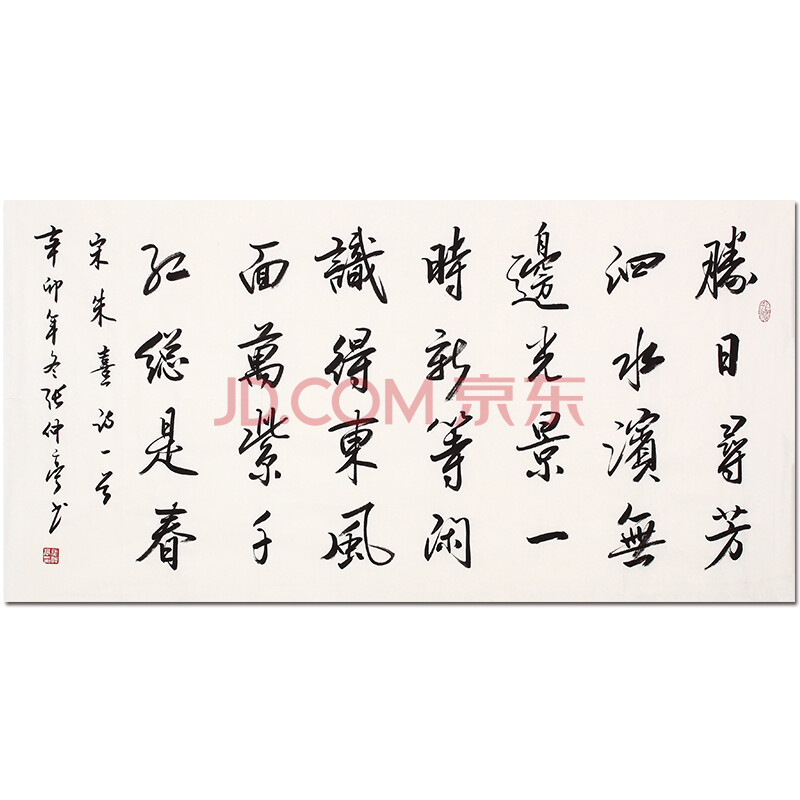 勝日尋芳
泗水濱無
邊光景一
時新等閑
識得東風
面萬紫千
紅總是春
宋朱熹詩一首
辛卯年冬張仲亭書
JD.COM 京东